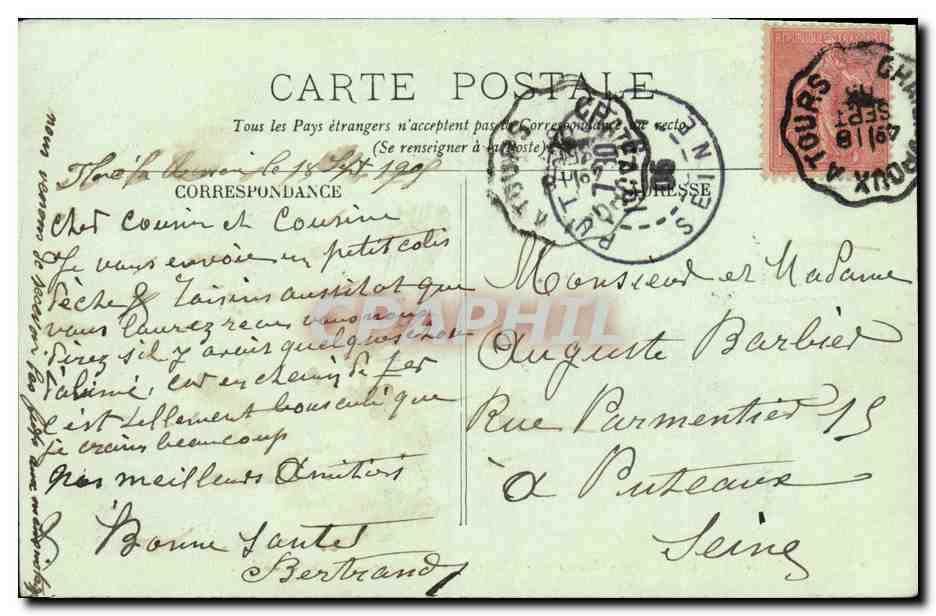 CARTE POSTALE
Tous les Pays étrangers n'acceptent pas la Correspondance au recto
(Se renseigner à la Poste)
le 18 Sept 190
CORRESPONDANCE
ADRESSE
Cher Cousin et Cousine
Je vous envoie un petit colis
pèche & raisins aussitot que
vous laurez recus vous nous
direz s'il y avait quelque chose
d'abimé, car en chemin de fer
c'est tellement bousculé que
je crains beaucoup
Nos meilleurs Amitiés
Bonne Santé
Bertrand
nous venons de recevoir
Monsieur et Madame
Auguste Barbier
Rue Parmentier 15
à Puteaux
Seine
CHATEAUROUX A TOURS
PUTEAUX
SEINE
CHATEAUROUX A TOURS
SEPT
CPAPHIL